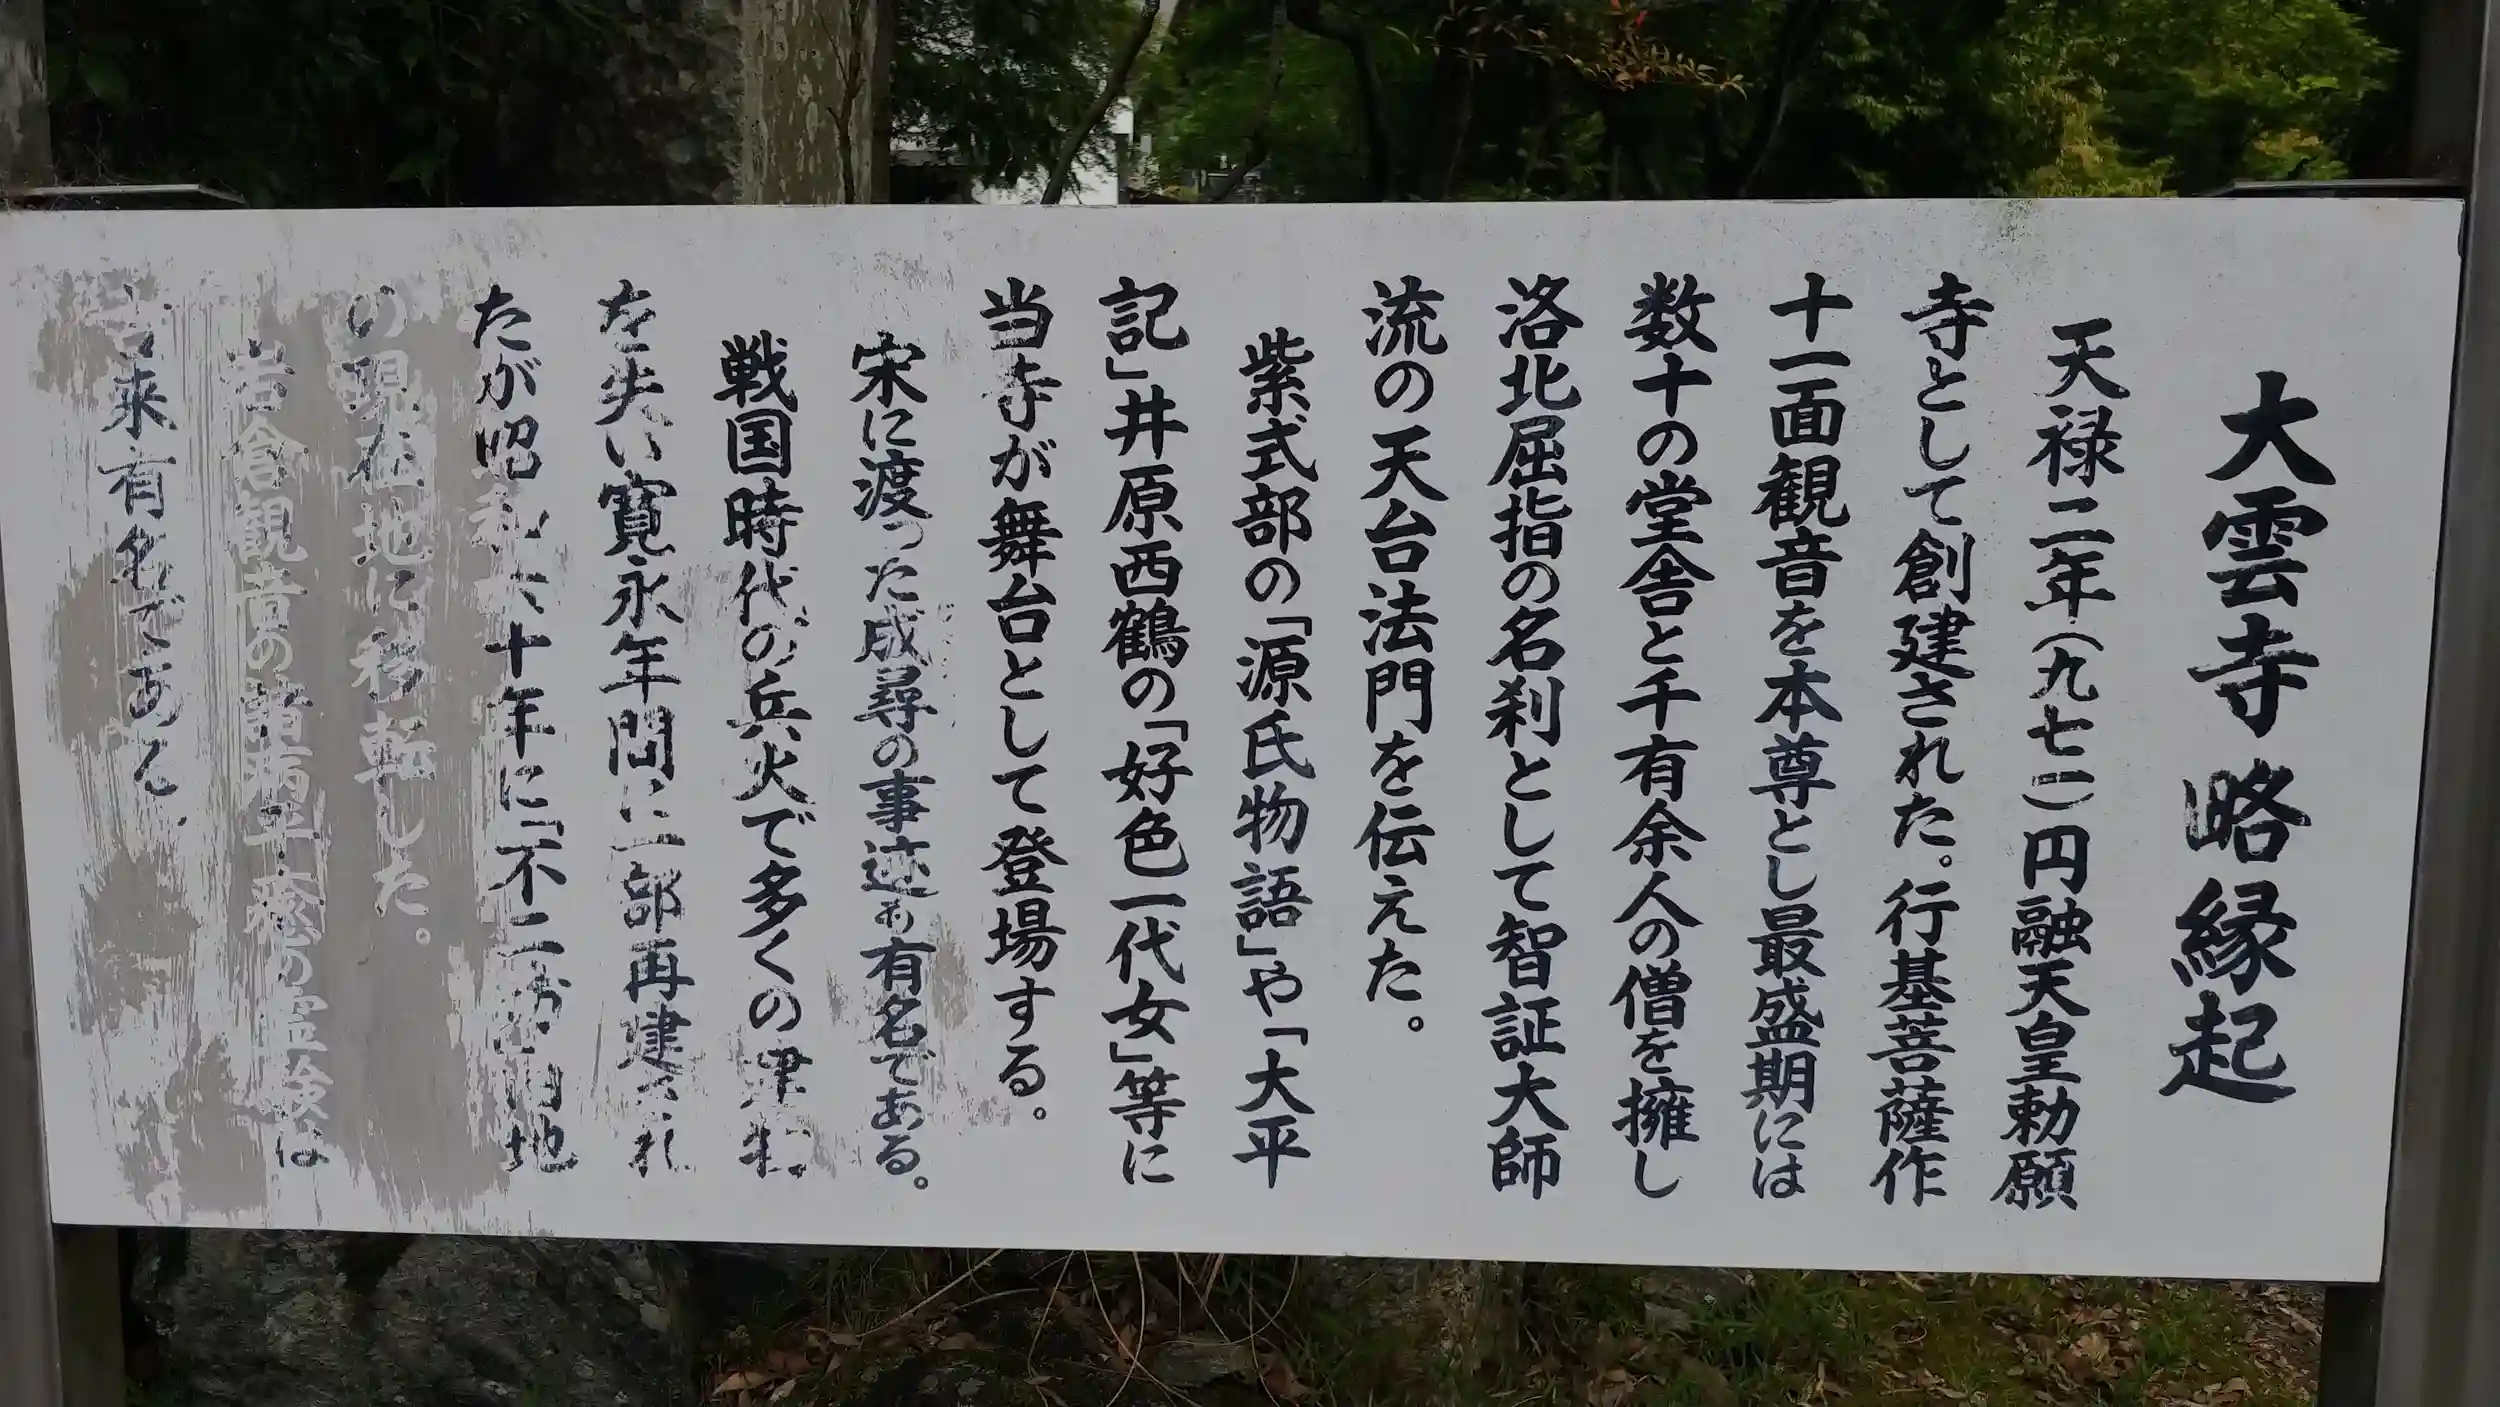 大雲寺略縁起
天禄二年（九七一）円融天皇勅願
寺として創建された。行基菩薩作
十一面観音を本尊とし最盛期には
数十の堂舎と千有余人の僧を擁し
洛北屈指の名刹として智証大師
流の天台法門を伝えた。
紫式部の「源氏物語」や「大平
記」井原西鶴の「好色一代女」等に
当寺が舞台として登場する。
宋に渡った成尋の事迹も有名である。
戦国時代の兵火で多くの建物
を失い寛永年間に一部再建され
たが昭和六十年に「不二の内地
の現在地に移転した。
岩倉観音の霊験は
古来有名である